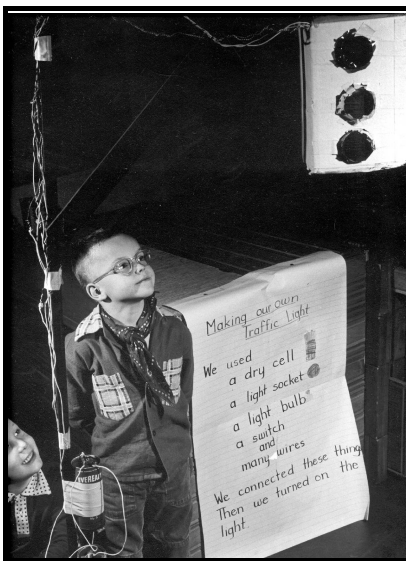 Making our own
Traffic Light
We used
a dry cell
a light socket
a light bulb
a switch
and
many wires
We connected these thing
Then we turned on the
light.
VEREA